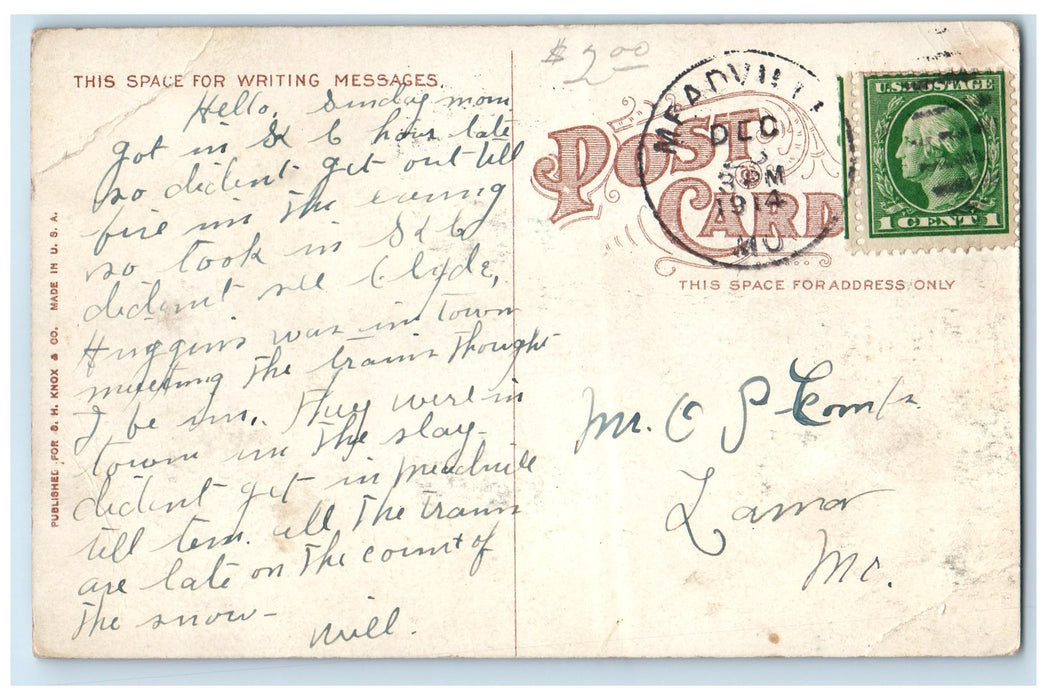 THIS SPACE FOR WRITING MESSAGES.
Hello, Sunday morn
got in K C 6 hour late
so dident get out till
five in the evening
so took in K C
dident see Clyde,
Huggins was in town
meeting the trains thought
I be in, They were in
town in the slay
dident get in Meadville
till ten. all the trains
are late on the count of
the snow-
Will.
PUBLISHED FOR S. H. KNOX & CO. MADE IN U. S. A.
$2.00
POST CARD
MEADVILLE
DEC
PM
1914
MO
U.S. POSTAGE
1 CENT 1
THIS SPACE FOR ADDRESS ONLY
Mr. C P Combs
Lamar
Mo.